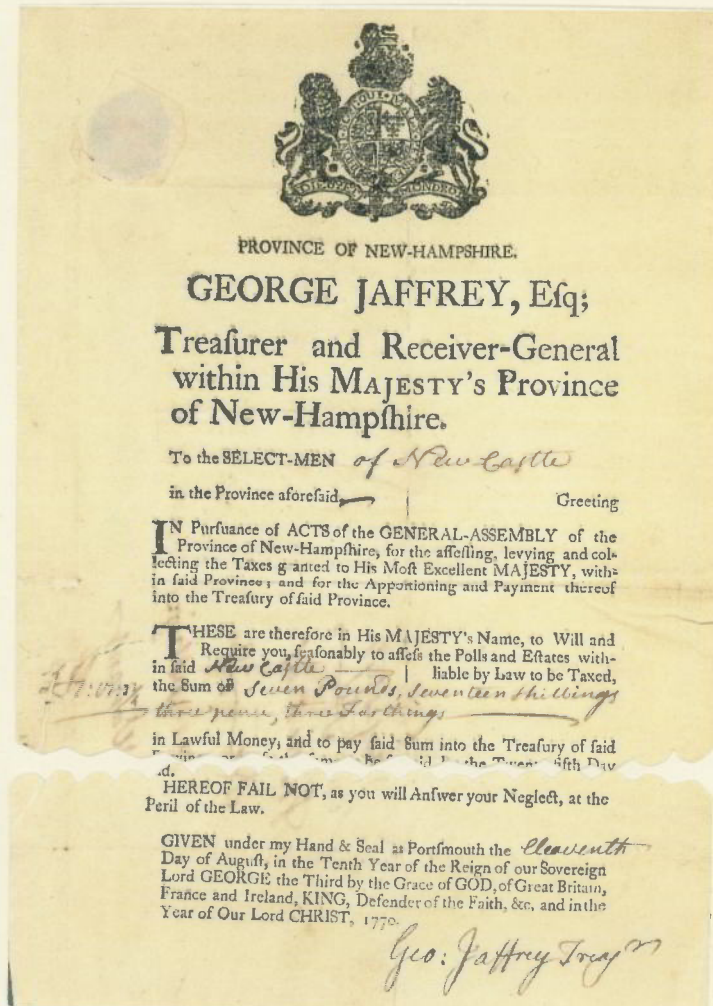 PROVINCE OF NEW-HAMPSHIRE.
GEORGE JAFFREY, Eſq;
Treaſurer and Receiver-General
within His MAJESTY's Province
of New-Hampſhire.
To the SELECT-MEN of New Castle
in the Province aforeſaid, Greeting
IN Purſuance of ACTS of the GENERAL-ASSEMBLY of the
Province of New-Hampſhire, for the aſſeſſing, levying and col-
lecting the Taxes granted to His Moſt Excellent MAJESTY, with-
in ſaid Province; and for the Apportioning and Payment thereof
into the Treaſury of ſaid Province.
THESE are therefore in His MAJESTY's Name, to Will and
Require you, ſeaſonably to aſſeſs the Polls and Eſtates with-
in ſaid New Castle liable by Law to be Taxed,
the Sum of Seven Pounds, Seventeen Shillings
three pence, three Farthings
in Lawful Money; and to pay ſaid Sum into the Treaſury of ſaid
the Twenty fifth Day
HEREOF FAIL NOT, as you will Anſwer your Neglect, at the
Peril of the Law.
GIVEN under my Hand & Seal at Portſmouth the Eleaventh
Day of Auguſt, in the Tenth Year of the Reign of our Sovereign
Lord GEORGE the Third by the Grace of GOD, of Great Britain,
France and Ireland, KING, Defender of the Faith, &c. and in the
Year of Our Lord CHRIST, 1770.
Geo: Jaffrey Treaſr